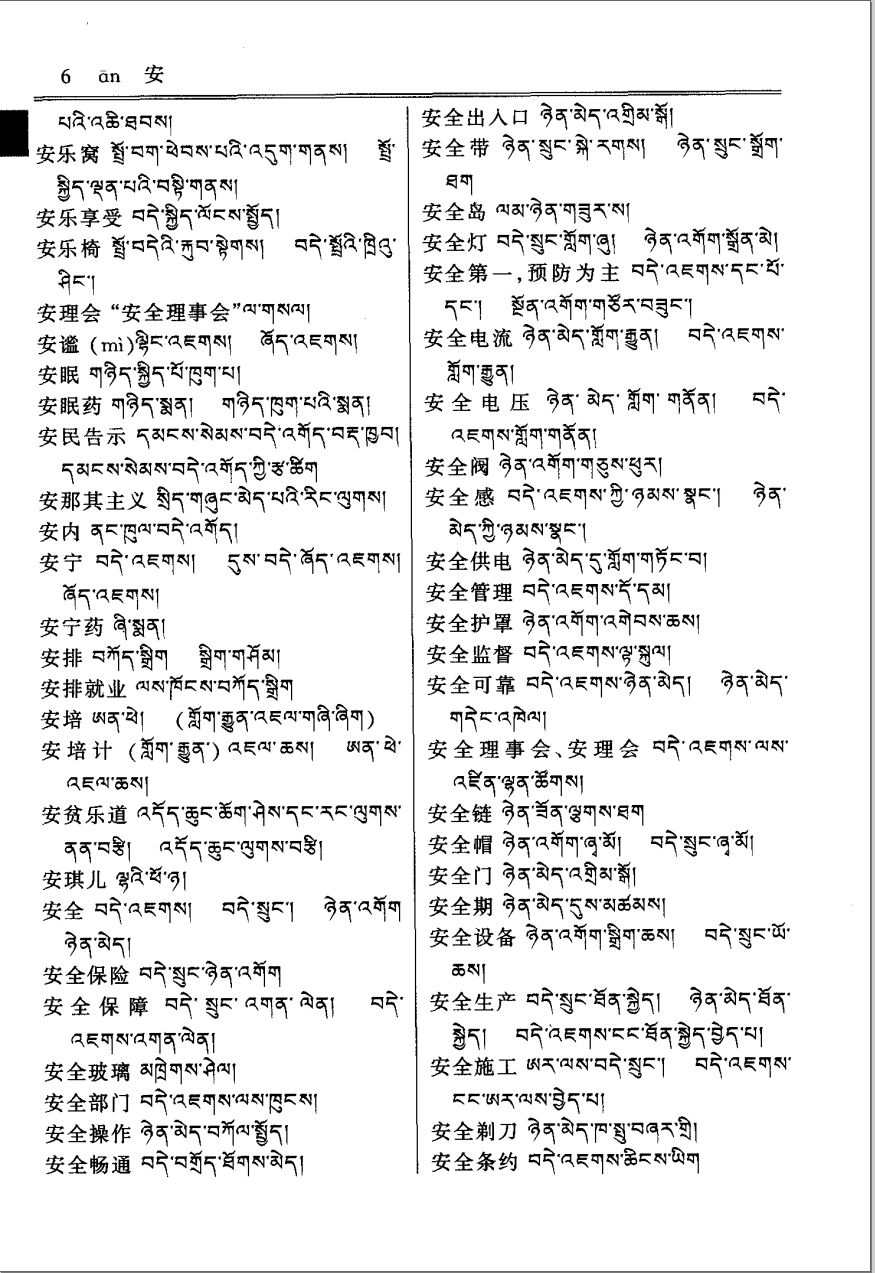 6 ān 安
པའི་འཆི་ཐབས།
安乐窝 སྤྲོ་བག་ཕེབས་པའི་འདུག་གནས། སྤྲོ་
སྐྱིད་ལྡན་པའི་བསྟི་གནས།
安乐享受 བདེ་སྐྱིད་ལོངས་སྤྱོད།
安乐椅 སྤྲོ་བདེའི་རྐུབ་སྟེགས། བདེ་སྤྲོའི་ཁྲིའུ་
ཤིང་།
安理会 “安全理事会”ལ་གསལ།
安谧 (mì)ལྷིང་འཇགས། ཞོད་འཇགས།
安眠 གཉིད་སྐྱིད་པོ་ཁུག་པ།
安眠药 གཉིད་སྨན། གཉིད་ཁུག་པའི་སྨན།
安民告示 དམངས་སེམས་བདེ་འགོད་བརྡ་ཁྱབ།
དམངས་སེམས་བདེ་འགོད་ཀྱི་རྩ་ཚིག
安那其主义 སྲིད་གཞུང་མེད་པའི་རིང་ལུགས།
安内 ནང་ཁུལ་བདེ་འགོད།
安宁 བདེ་འཇགས། དུས་བདེ་ཞོད་འཇགས།
ཞོད་འཇགས།
安宁药 ཞི་སྨན།
安排 བཀོད་སྒྲིག སྒྲིག་གཤོམ།
安排就业 ལས་ཁོངས་བཀོད་སྒྲིག
安培 ཨན་ཕེ། (གློག་རྒྱུན་འཇལ་གཞི་ཞིག)
安培计 (གློག་རྒྱུན་) འཇལ་ཆས། ཨན་ཕེ་
འཇལ་ཆས།
安贫乐道 འདོད་ཆུང་ཆོག་ཤེས་དང་རང་ལུགས་
ནན་བརྩི། འདོད་ཆུང་ལུགས་བརྩི།
安琪儿 ལྷའི་ཕོ་ཉ།
安全 བདེ་འཇགས། བདེ་སྲུང་། ཉེན་འགོག
ཉེན་མེད།
安全保险 བདེ་སྲུང་ཉེན་འགོག
安全保障 བདེ་སྲུང་འགན་ལེན། བདེ་
འཇགས་འགན་ལེན།
安全玻璃 མཁྲེགས་ཤེལ།
安全部门 བདེ་འཇགས་ལས་ཁུངས།
安全操作 ཉེན་མེད་བཀོལ་སྤྱོད།
安全畅通 བདེ་བགྲོད་ཐོགས་མེད།
安全出入口 ཉེན་མེད་འགྲིམ་སྒོ།
安全带 ཉེན་སྲུང་སྐེ་རགས། ཉེན་སྲུང་སྒྲོག་
ཐག
安全岛 ལམ་ཉེན་གཟུར་ས།
安全灯 བདེ་སྲུང་གློག་ཞུ། ཉེན་འགོག་སྒྲོན་མེ།
安全第一,预防为主 བདེ་འཇགས་དང་པོ་
དང་། སྔོན་འགོག་གཙོར་བཟུང་།
安全电流 ཉེན་མེད་གློག་རྒྱུན། བདེ་འཇགས་
གློག་རྒྱུན།
安全电压 ཉེན་མེད་གློག་གནོན། བདེ་
འཇགས་གློག་གནོན།
安全阀 ཉེན་འགོག་གཅུས་ཕུར།
安全感 བདེ་འཇགས་ཀྱི་ཉམས་སྣང་། ཉེན་
མེད་ཀྱི་ཉམས་སྣང་།
安全供电 ཉེན་མེད་དུ་གློག་གཏོང་བ།
安全管理 བདེ་འཇགས་དོ་དམ།
安全护罩 ཉེན་འགོག་འགེབས་ཆས།
安全监督 བདེ་འཇགས་ལྟ་སྐུལ།
安全可靠 བདེ་འཇགས་ཉེན་མེད། ཉེན་མེད་
གདེང་འཁེལ།
安全理事会、安理会 བདེ་འཇགས་ལས་
འཛིན་ལྷན་ཚོགས།
安全链 ཉེན་ཟོན་ལྕགས་ཐག
安全帽 ཉེན་འགོག་ཞྭ་མོ། བདེ་སྲུང་ཞྭ་མོ།
安全门 ཉེན་མེད་འགྲིམ་སྒོ།
安全期 ཉེན་མེད་དུས་མཚམས།
安全设备 ཉེན་འགོག་སྒྲིག་ཆས། བདེ་སྲུང་ཡོ་
ཆས།
安全生产 བདེ་སྲུང་ཐོན་སྐྱེད། ཉེན་མེད་ཐོན་
སྐྱེད། བདེ་འཇགས་ངང་ཐོན་སྐྱེད་བྱེད་པ།
安全施工 ཨར་ལས་བདེ་སྲུང་། བདེ་འཇགས་
ངང་ཨར་ལས་བྱེད་པ།
安全剃刀 ཉེན་མེད་ཁ་སྤུ་བཞར་གྲི།
安全条约 བདེ་འཇགས་ཆིངས་ཡིག